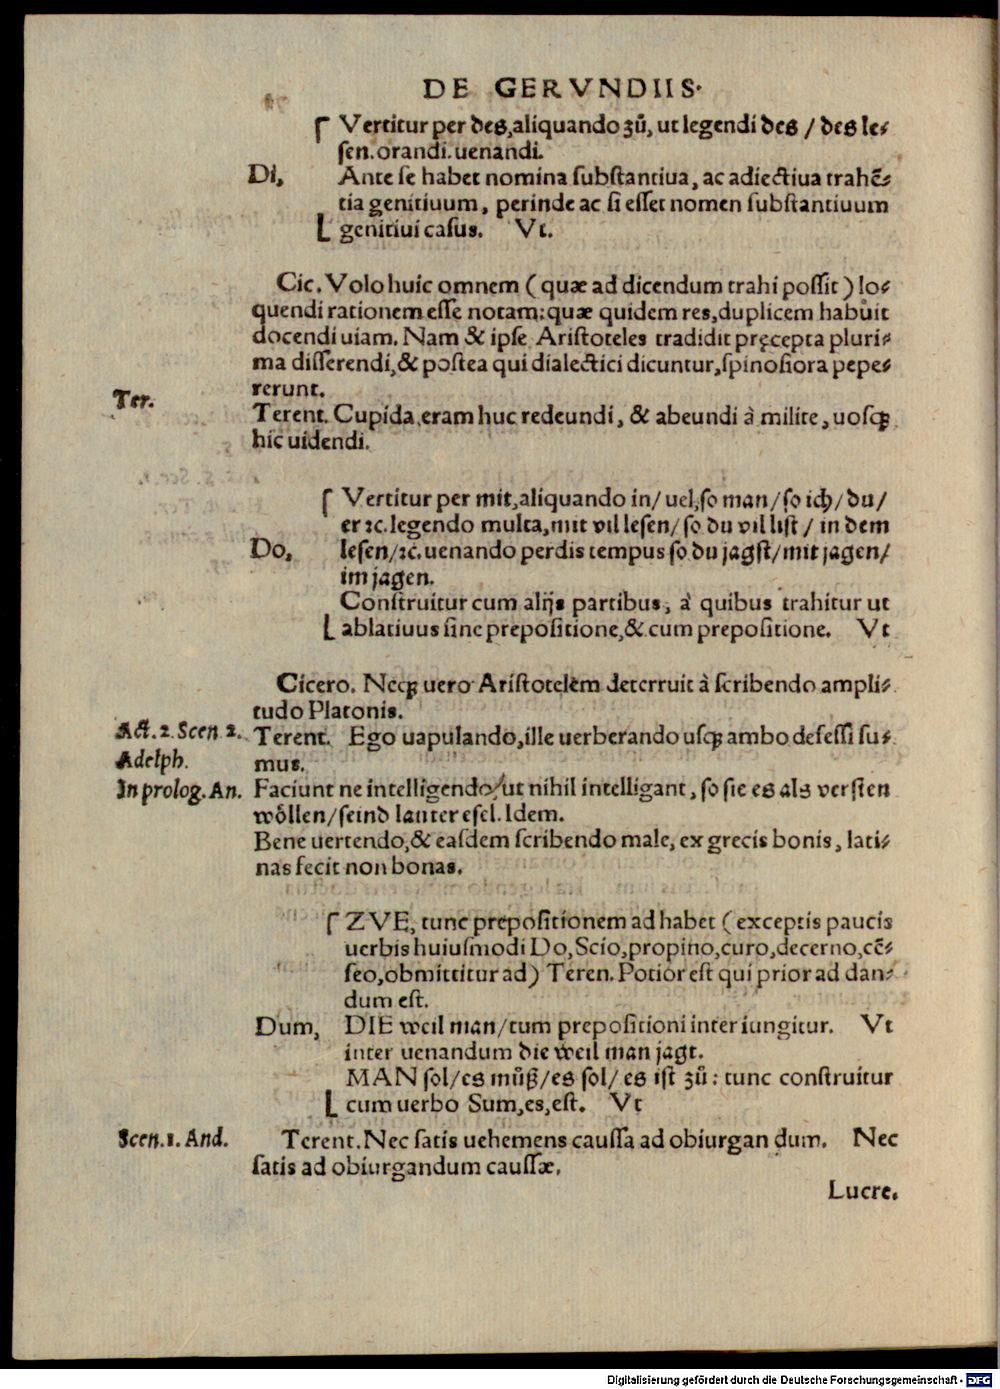 DE GERVNDIIS.
Vertitur per des, aliquando zů, ut legendi des / des le⸗
sen. orandi. uenandi.
Di, Ante se habet nomina substantiua, ac adiectiua trahē⸗
tia genitiuum, perinde ac si esset nomen substantiuum
genitiui casus. Vt.
Cic. Volo huic omnem (quæ ad dicendum trahi possit) lo⸗
quendi rationem esse notam: quæ quidem res, duplicem habuit
docendi uiam. Nam & ipse Aristoteles tradidit pręcepta pluri⸗
ma disserendi, & postea qui dialectici dicuntur, spinosiora pepe⸗
rerunt.
Ter. Terent. Cupida eram huc redeundi, & abeundi à milite, uosq;
hic uidendi.
Vertitur per mit, aliquando in/ uel, so man/ so ich/ du/
er ꝛc. legendo multa, mit vil lesen/ so du vil list / in dem
Do, lesen/ꝛc. uenando perdis tempus so du jagst/ mit jagen/
im jagen.
Construitur cum alijs partibus, à quibus trahitur ut
ablatiuus sine prepositione, & cum prepositione. Vt
Cicero. Neq; uero Aristotelem deterruit à scribendo ampli⸗
tudo Platonis.
Act. 2. Scen 2. Terent. Ego uapulando, ille uerberando usq; ambo defessi su⸗
Adelph. mus.
In prolog. An. Faciunt ne intelligendo/ ut nihil intelligant, so sie es als versten
wöllen/ seind lauter esel. Idem.
Bene uertendo, & easdem scribendo male, ex grecis bonis, lati⸗
nas fecit non bonas.
ZVE, tunc prepositionem ad habet (exceptis paucis
uerbis huiusmodi Do, Scio, propino, curo, decerno, cē⸗
seo, obmittitur ad) Teren. Potior est qui prior ad dan⸗
dum est.
Dum, DIE weil man/ tum prepositioni inter iungitur. Vt
inter uenandum die weil man jagt.
MAN sol/ es můß/ es sol/ es ist zů: tunc construitur
cum uerbo Sum, es, est. Vt
Scen. 1. And. Terent. Nec satis uehemens caussa ad obiurgan dum. Nec
satis ad obiurgandum caussæ.
Lucre.
Digitalisierung gefördert durch die Deutsche Forschungsgemeinschaft - DFG